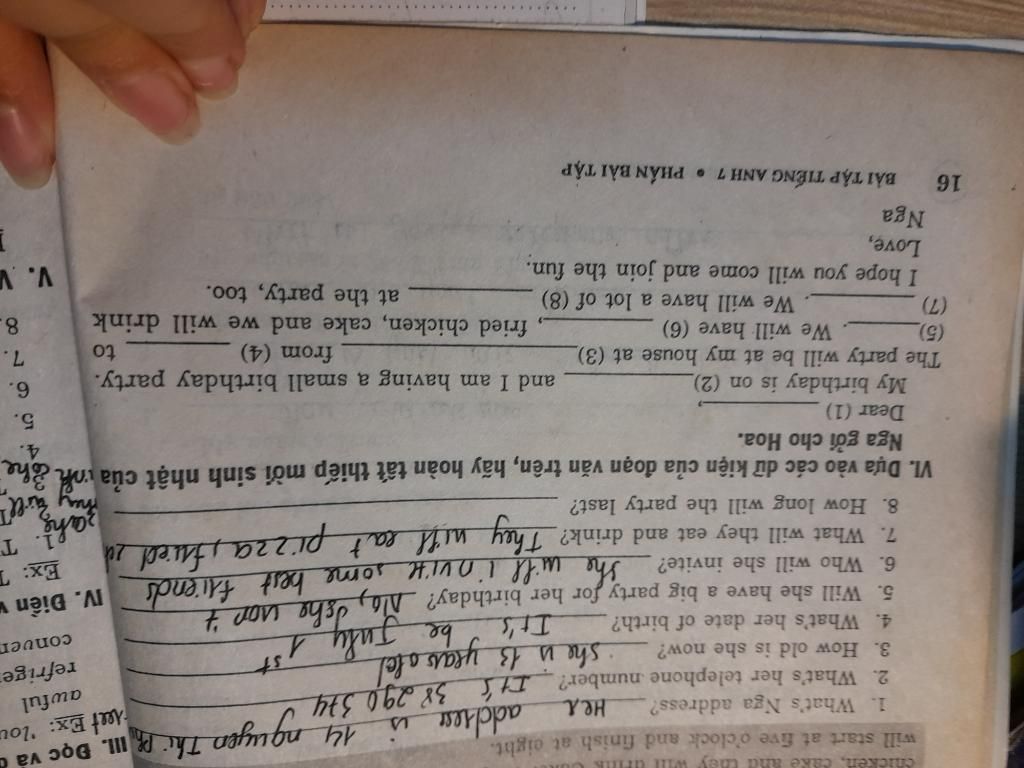 chicken, cake and they will drink
will start at five o'clock and finish at eight.
1. What's Nga address? Her address is 14 nguyen Thi
2. What's her telephone number? It's 38 290 374
3. How old is she now? She is 13 years old
4. What's her date of birth? It's be July 1st
5. Will she have a big party for her birthday? No, she won't
6. Who will she invite? She will invite some best friends
7. What will they eat and drink? They will eat pizza, fried
8. How long will the party last?
VI. Dựa vào các dữ kiện của đoạn văn trên, hãy hoàn tất thiếp mời sinh nhật của
Nga gởi cho Hoa.
Dear (1) ,
My birthday is on (2) and I am having a small birthday party.
The party will be at my house at (3) from (4) to
(5) . We will have (6) , fried chicken, cake and we will drink
(7) . We will have a lot of (8) at the party, too.
I hope you will come and join the fun.
Love,
Nga
16 BÀI TẬP TIẾNG ANH 7 • PHẦN BÀI TẬP
III. Đọc và
Ex:
awful
refriger
conven
IV. Điền
Ex: T
1. T
4.
5.
6.
7.
8.
V. V